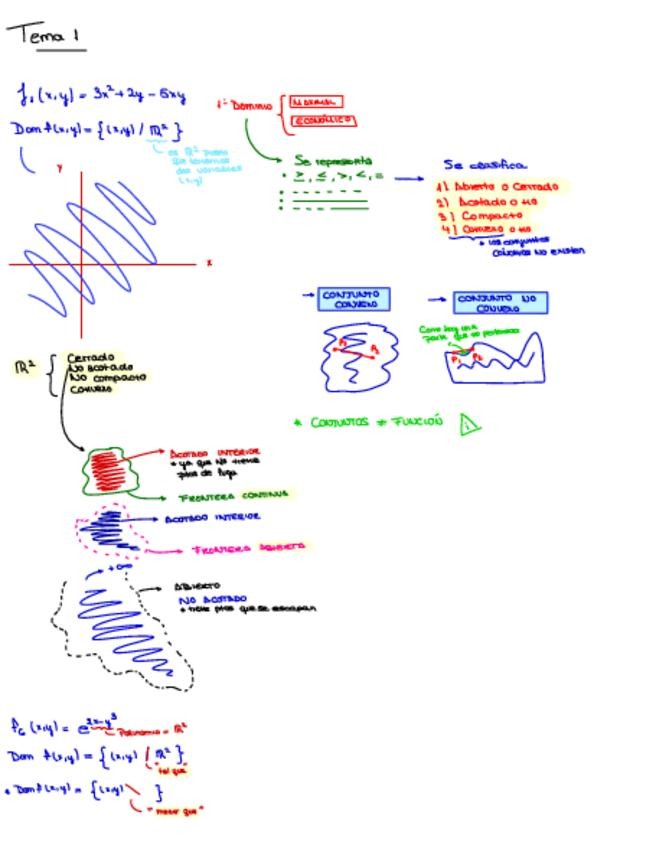 Tema 1
f₁(x,y) = 3x² + 2y - 5xy
Dom f(x,y) = {(x,y) / ℝ² }
es ℝ² plano
que tenemos
dos variables
(x,y)
1º Dominio
MATERIAL
ECONÓMICO
Se representa
• ≥, ≤, >, <, =
Se clasifica
1) Abierto o Cerrado
2) Acotado o no
3) Compacto
4) Convexo o no
• los conjuntos
cóncavos no existen
y
x
→ CONJUNTO
CONVEXO
→ CONJUNTO NO
CONVEXO
Como hay una
parte que no pertenece
P₁
P₂
P₁ P₂
ℝ²
Cerrado
No acotado
No compacto
Convexo
* CONJUNTOS ≠ FUNCIÓN
ACOTADO INTERIOR
• ya que no tiene
ptos de fuga
FRONTERA CONTINUA
ACOTADO INTERIOR
FRONTERA ABIERTA
+∞
ABIERTO
NO ACOTADO
• tiene ptos que se escapan
f₆(x,y) = e^{2x-y³}
Polinomio = ℝ²
Dom f(x,y) = {(x,y) / ℝ² }
"tal que"
• Dom f(x,y) = {(x,y) \ }
"menos que"